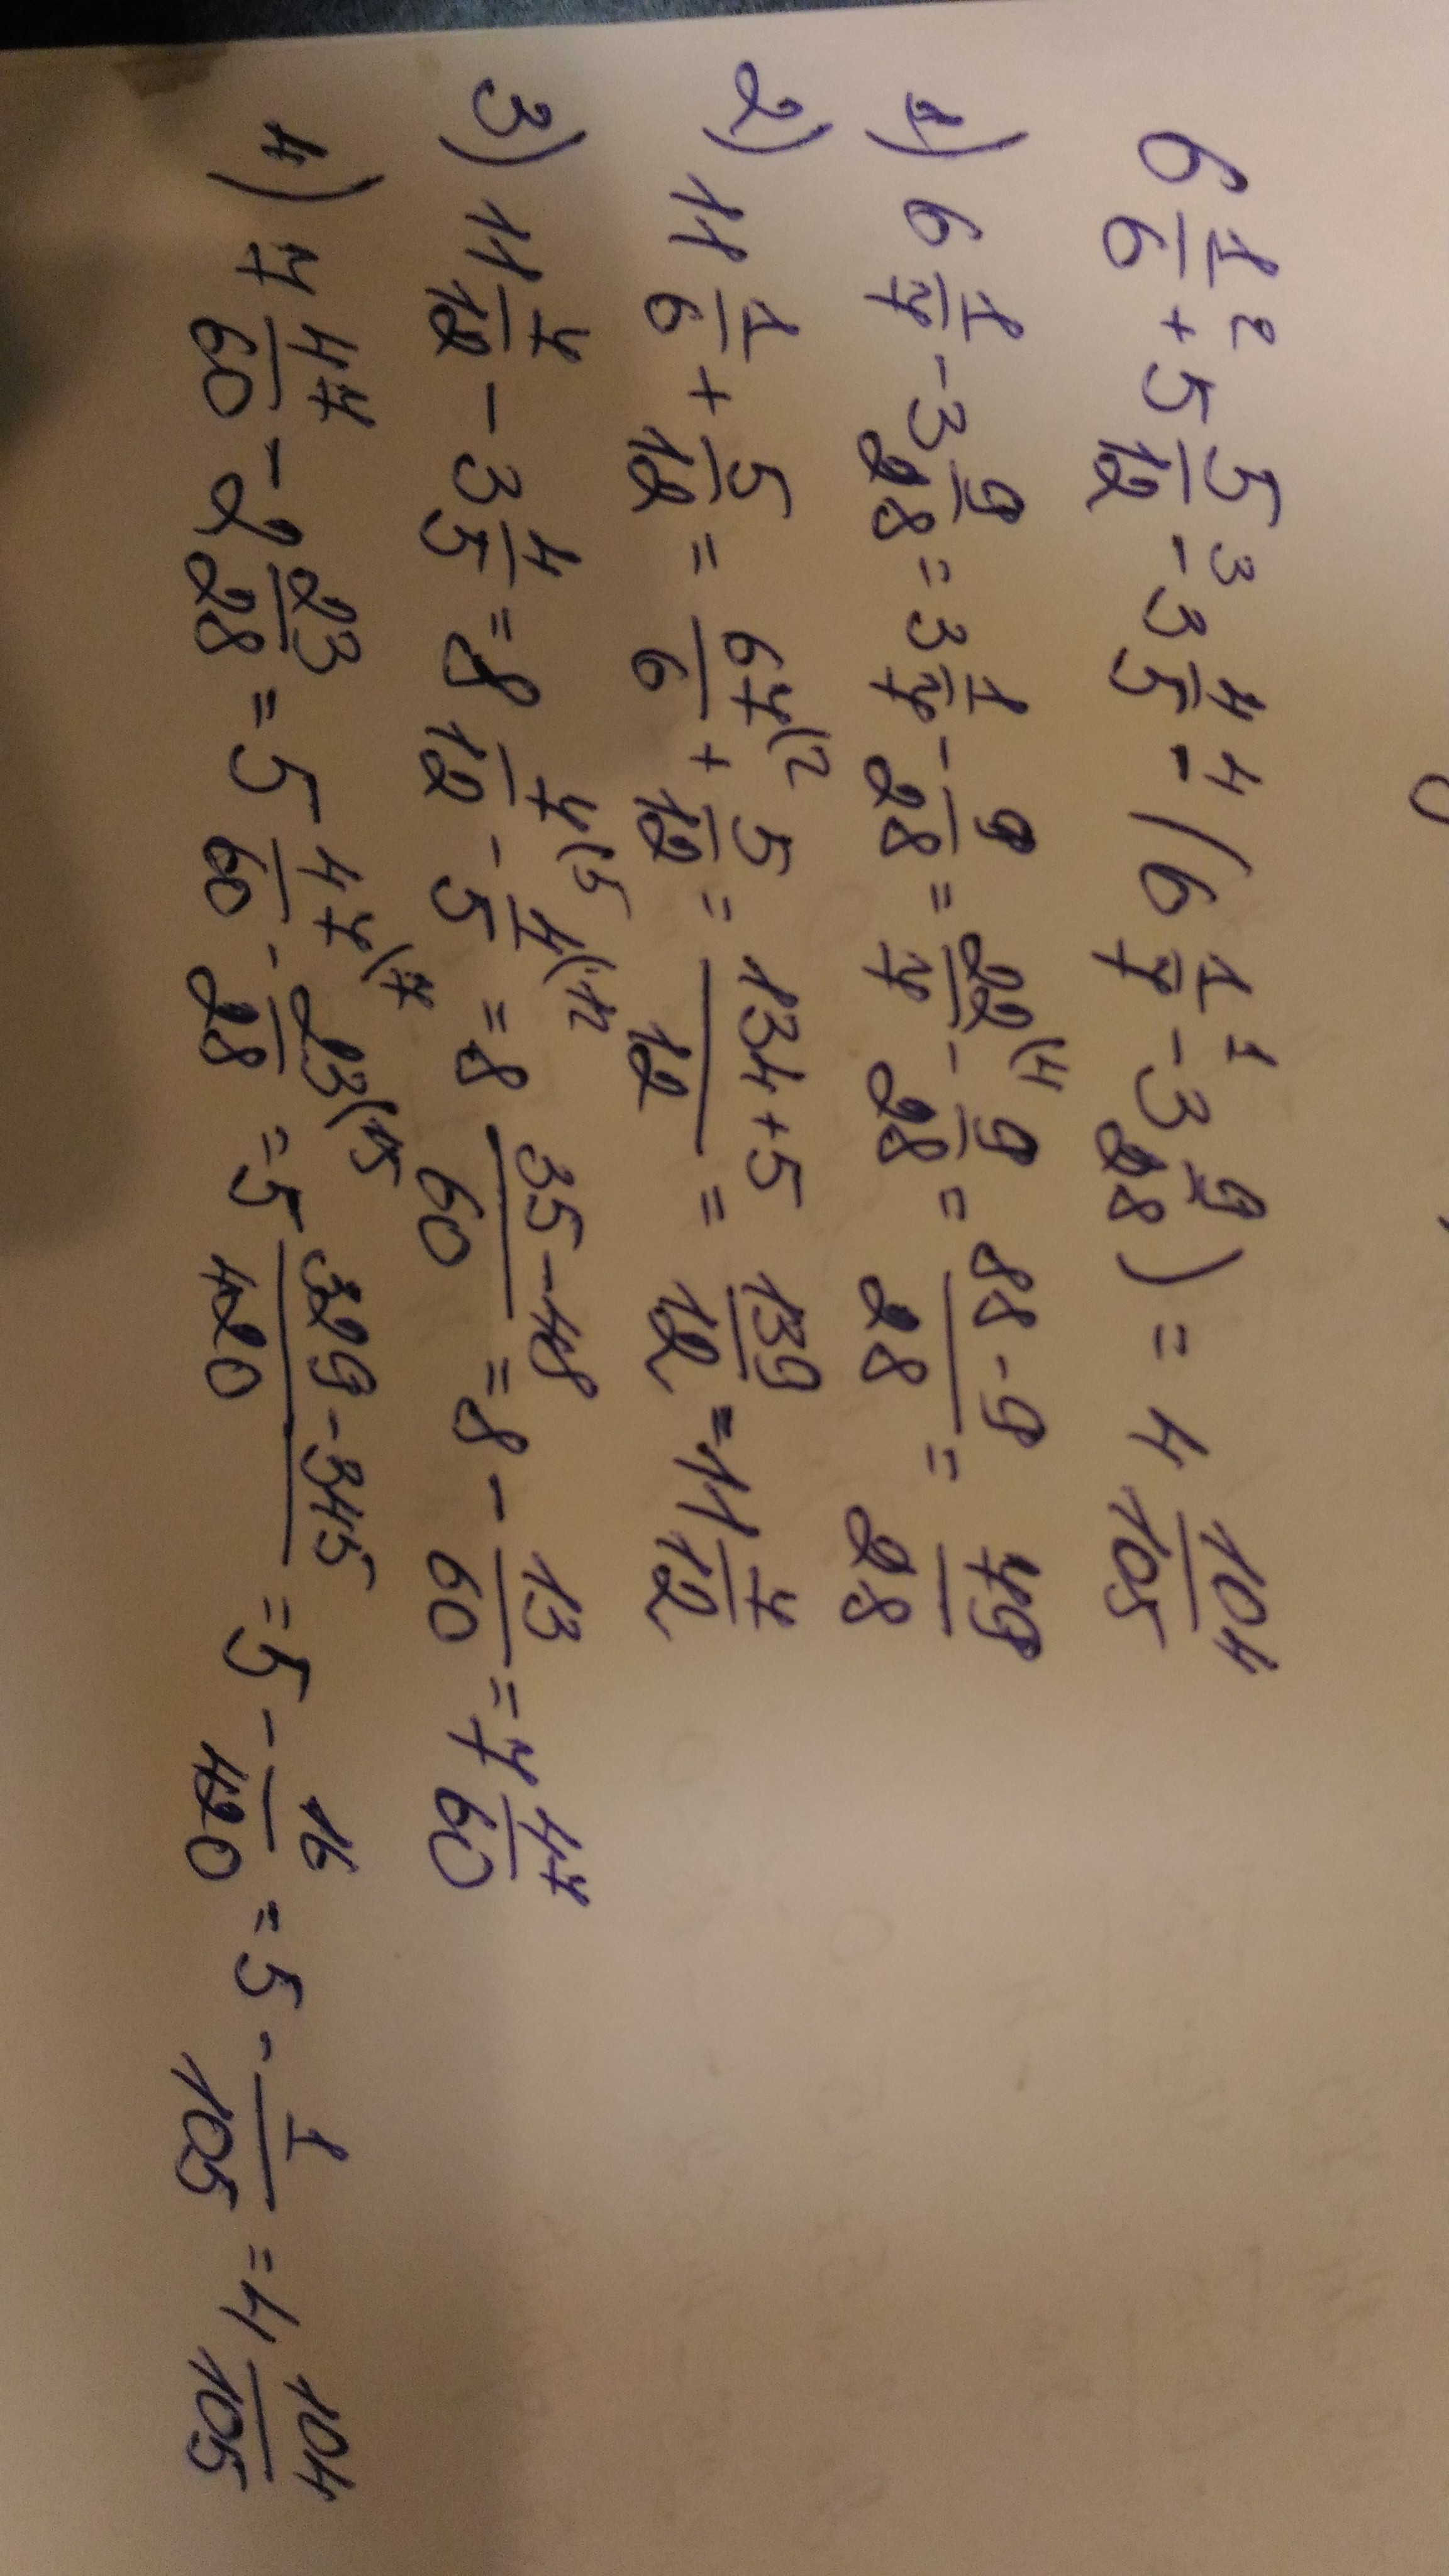 6 1/6 + 5 5/12 - 3 4/5 - (6 1/7 - 3 9/28) = 4 104/105
1) 6 1/7 - 3 9/28 = 3 1/7 - 9/28 = 22(4/7 - 9/28 = 88-9/28 = 79/28
2) 11 1/6 + 5/12 = 67(2/6 + 5/12 = 134+5/12 = 139/12 = 11 7/12
3) 11 7/12 - 3 4/5 = 8 7(5/12 - 4(12/5 = 8 35-48/60 = 8 - 13/60 = 7 47/60
4) 7 47/60 - 2 23/28 = 5 47(7/60 - 23(15/28 = 5 329-345/420 = 5 - 16/420 = 5 - 1/105 = 4 104/105